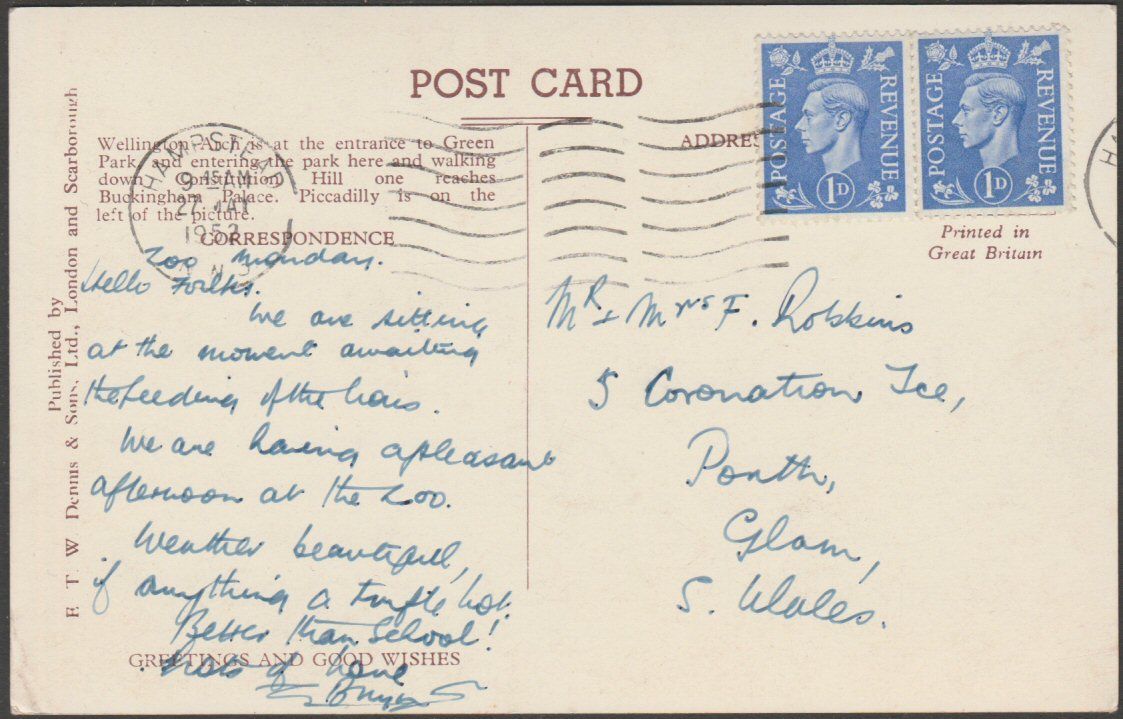 POST CARD
Wellington Arch is at the entrance to Green
Park and entering the park here and walking
down Constitution Hill one reaches
Buckingham Palace. Piccadilly is on the
left of the picture.
CORRESPONDENCE
HAMPSTEAD
9 15 AM
MAY
Zoo Monday.
Hello Folks.
We are sitting
at the moment awaiting
the feeding of the lions.
We are having a pleasant
afternoon at the Zoo.
Weather beautiful,
if anything a trifle hot.
Better than School!
GREETINGS AND GOOD WISHES
Lots of Love
Published by
E. T. W. Dennis & Sons, Ltd., London and Scarborough
ADDRESS
POSTAGE REVENUE
1D
POSTAGE REVENUE
1D
Printed in
Great Britain
Mr & Mrs F. Robbins
5 Coronation Tce,
Porth,
Glam,
S. Wales.